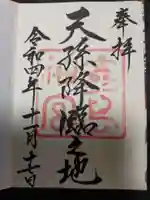 奉拝
天孫降臨之地
令和四年十一月十二日